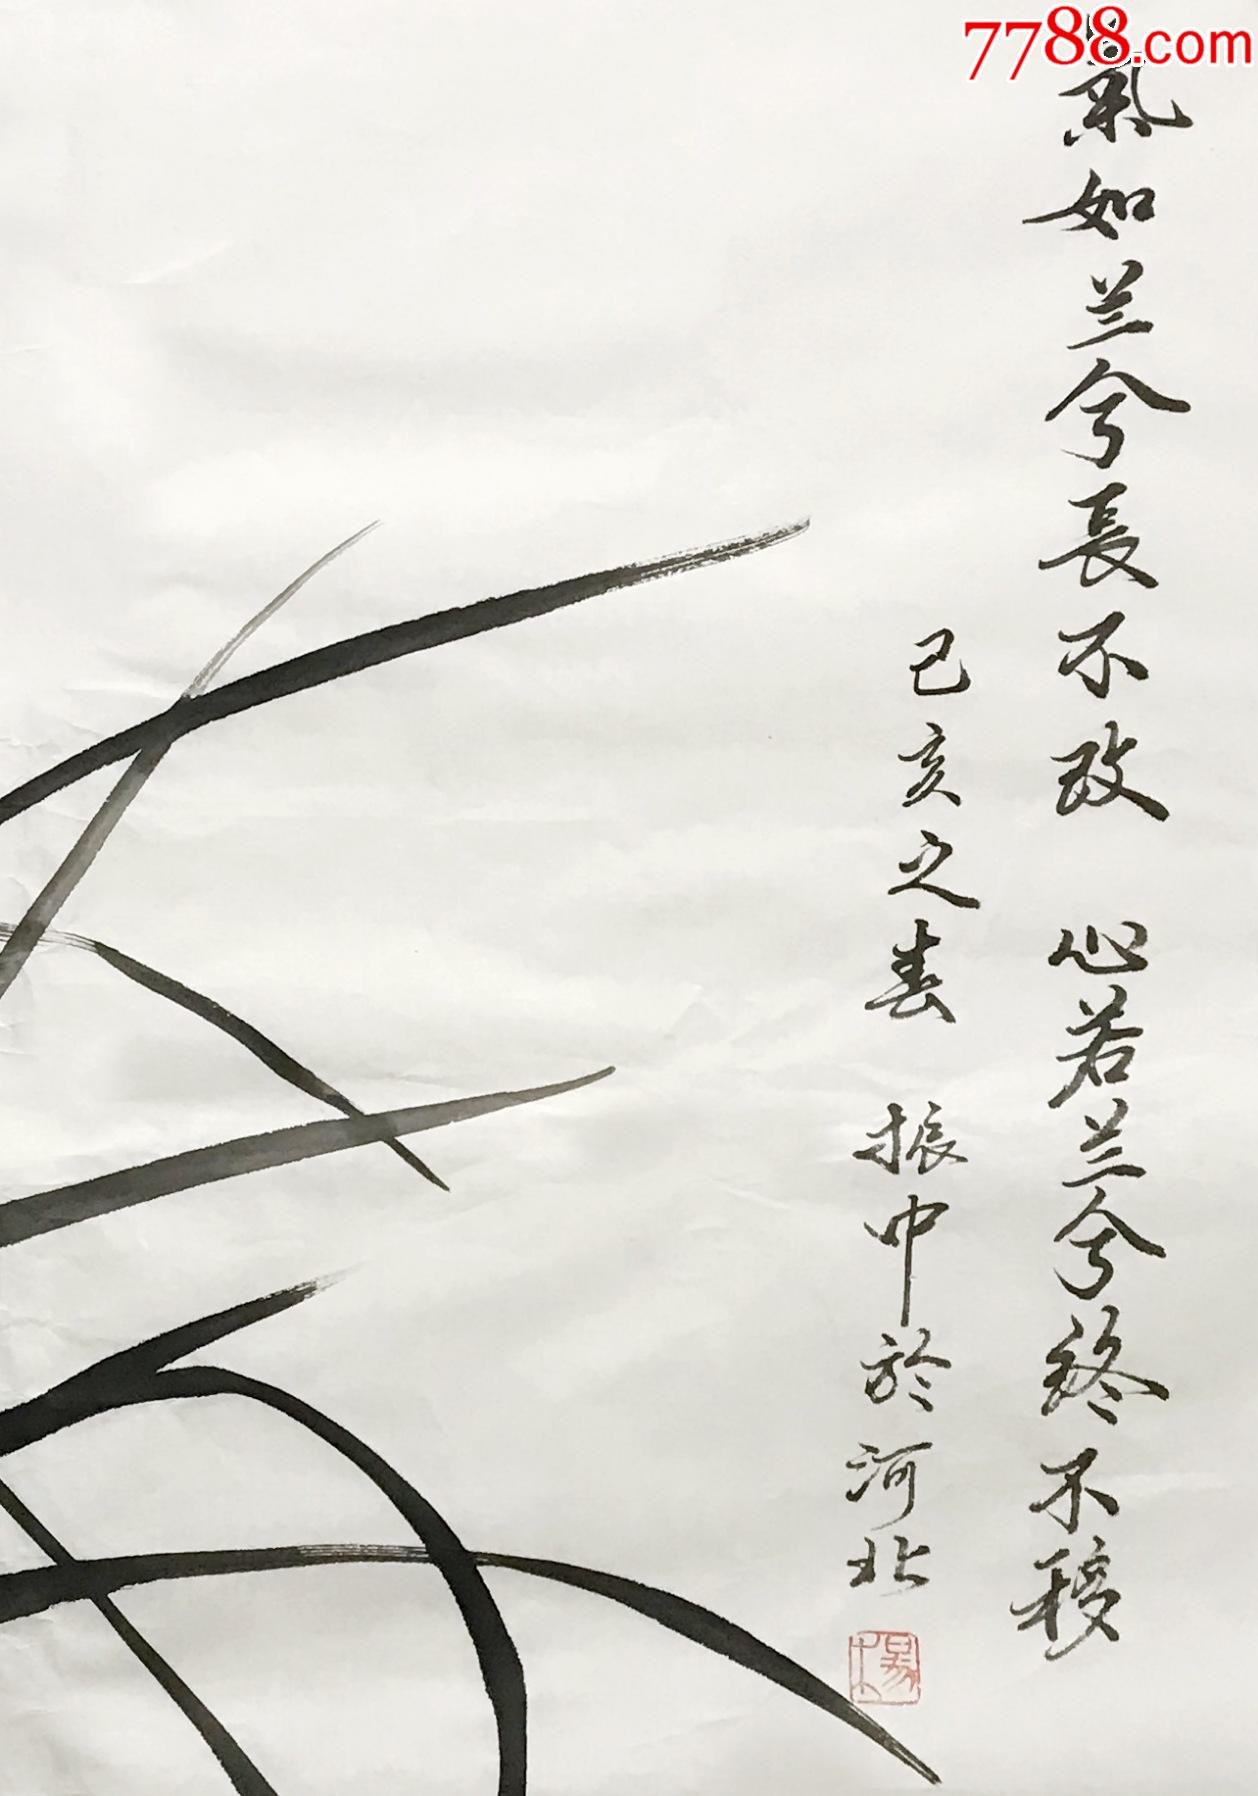 7788.com
氣如兰兮長不改 心若兰兮終不移
己亥之春 振中於河北